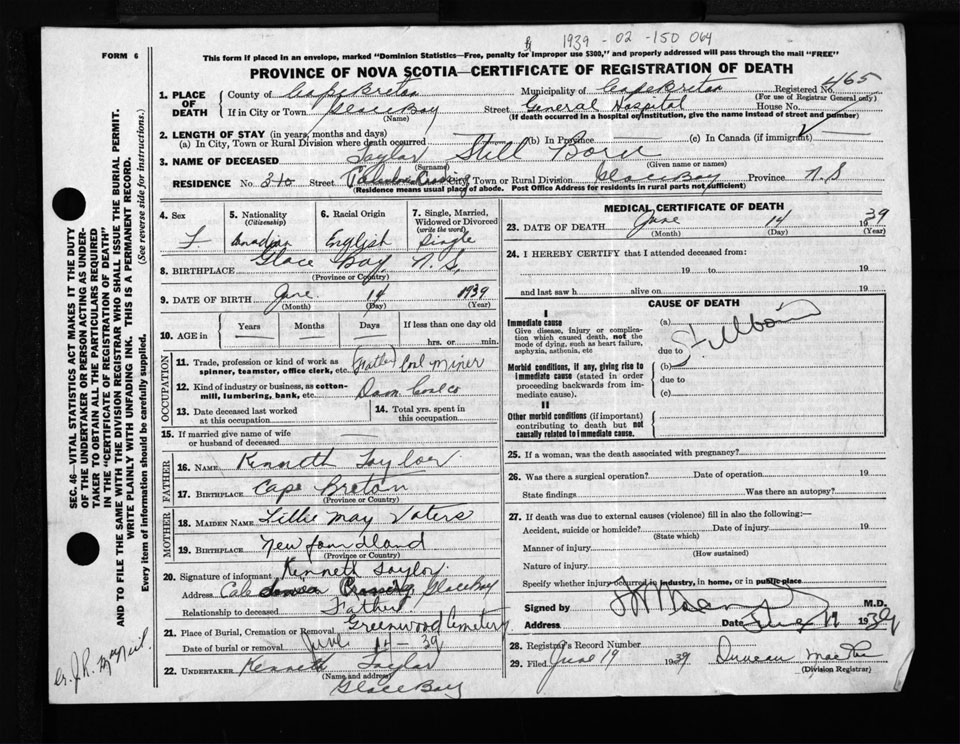 1939 - 02 - 150 064
FORM 6
This form if placed in an envelope, marked "Dominion Statistics—Free, penalty for improper use $300," and properly addressed will pass through the mail "FREE"
PROVINCE OF NOVA SCOTIA—CERTIFICATE OF REGISTRATION OF DEATH
1. PLACE OF DEATH
County of Cape Breton Municipality of Cape Breton Registered No. 465
(For use of Registrar General only)
If in City or Town Glace Bay Street General Hospital House No.
(Name) (If death occurred in a hospital or institution, give the name instead of street and number)
2. LENGTH OF STAY (in years, months and days)
(a) In City, Town or Rural Division where death occurred (b) In Province (c) In Canada (if immigrant)
3. NAME OF DECEASED Taylor Still Born
(Surname) (Given name or names)
RESIDENCE No. 310 Street Crossing City, Town or Rural Division Glace Bay Province N.S
(Residence means usual place of abode. Post Office Address for residents in rural parts not sufficient)
4. Sex
F
5. Nationality
(Citizenship)
Canadian
6. Racial Origin
English
7. Single, Married, Widowed or Divorced
(write the word)
Single
8. BIRTHPLACE Glace Bay, N.S.
(Province or Country)
9. DATE OF BIRTH June 14 1939
(Month) (Day) (Year)
10. AGE in Years Months Days If less than one day
hrs. or min.
OCCUPATION
11. Trade, profession or kind of work as spinner, teamster, office clerk, etc. (Father) Coal Miner
12. Kind of industry or business, as cotton-mill, lumbering, bank, etc. Dom Coal Co
13. Date deceased last worked at this occupation
14. Total yrs. spent in this occupation
15. If married give name of wife or husband of deceased
FATHER
16. NAME Kenneth Taylor
17. BIRTHPLACE Cape Breton
(Province or Country)
MOTHER
18. MAIDEN NAME Lillie May Voters
19. BIRTHPLACE Newfoundland
(Province or Country)
20. Signature of informant Kenneth Taylor
Address Crossing Glace Bay
Relationship to deceased Father
21. Place of Burial, Cremation or Removal Greenwood Cemetery
Date of burial or removal June 14 - 39
22. UNDERTAKER Kenneth Taylor
(Name and address)
Glace Bay
MEDICAL CERTIFICATE OF DEATH
23. DATE OF DEATH June 14 1939
(Month) (Day) (Year)
24. I HEREBY CERTIFY that I attended deceased from:
19 to 19
and last saw h alive on 19
CAUSE OF DEATH
I
Immediate cause
Give disease, injury or complication which caused death, not the mode of dying, such as heart failure, asphyxia, asthenia, etc
(a) Stillborn
due to
Morbid conditions, if any, giving rise to immediate cause (stated in order proceeding backwards from immediate cause).
(b)
due to
(c)
II
Other morbid conditions (if important) contributing to death but not causally related to immediate cause.
25. If a woman, was the death associated with pregnancy?
26. Was there a surgical operation? Date of operation 19
State findings Was there an autopsy?
27. If death was due to external causes (violence) fill in also the following:—
Accident, suicide or homicide? Date of injury 19
(State which)
Manner of injury
(How sustained)
Nature of injury
Specify whether injury occurred in industry, in home, or in public place
Signed by M.D.
Address Date June 19 1939
28. Registrar's Record Number
29. Filed June 19 1939 Duncan
(Division Registrar)
SEC. 46—VITAL STATISTICS ACT MAKES IT THE DUTY
OF THE UNDERTAKER OR PERSON ACTING AS UNDERTAKER TO OBTAIN ALL THE PARTICULARS REQUIRED
IN THE "CERTIFICATE OF REGISTRATION OF DEATH"
AND TO FILE THE SAME WITH THE DIVISION REGISTRAR WHO SHALL ISSUE THE BURIAL PERMIT.
WRITE PLAINLY WITH UNFADING INK. THIS IS A PERMANENT RECORD.
Every item of information should be carefully supplied. (See reverse side for instructions.)
Dr. J.R. MacNeil